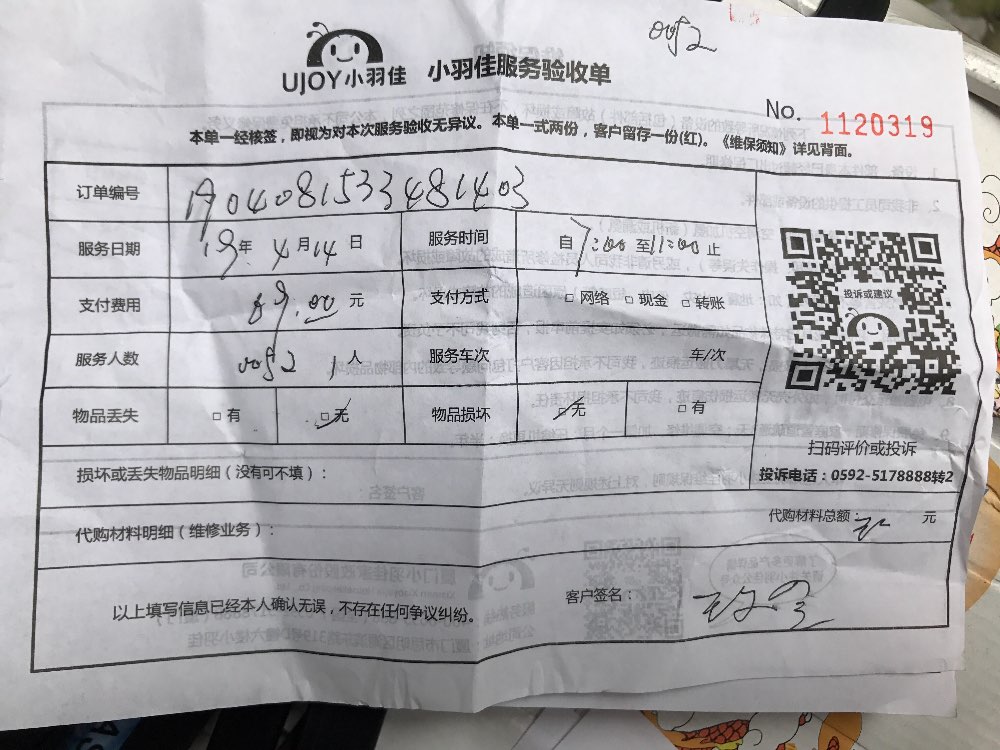 0052
UJOY小羽佳 小羽佳服务验收单
No. 1120319
本单一经核签，即视为对本次服务验收无异议。本单一式两份，客户留存一份(红)。《维保须知》详见背面。
订单编号 190408153348 1403
服务日期 19年 4月14日 服务时间 自7:00至11:00止
支付费用 元 支付方式 □网络 □现金 □转账
服务人数 1人 服务车次 车/次
物品丢失 □有 ☑无 物品损坏 ☑无 □有
投诉或建议
扫码评价或投诉
投诉电话：0592-5178888转2
损坏或丢失物品明细（没有可不填）：
代购材料明细（维修业务）： 代购材料总额： 元
以上填写信息已经本人确认无误，不存在任何争议纠纷。 客户签名：